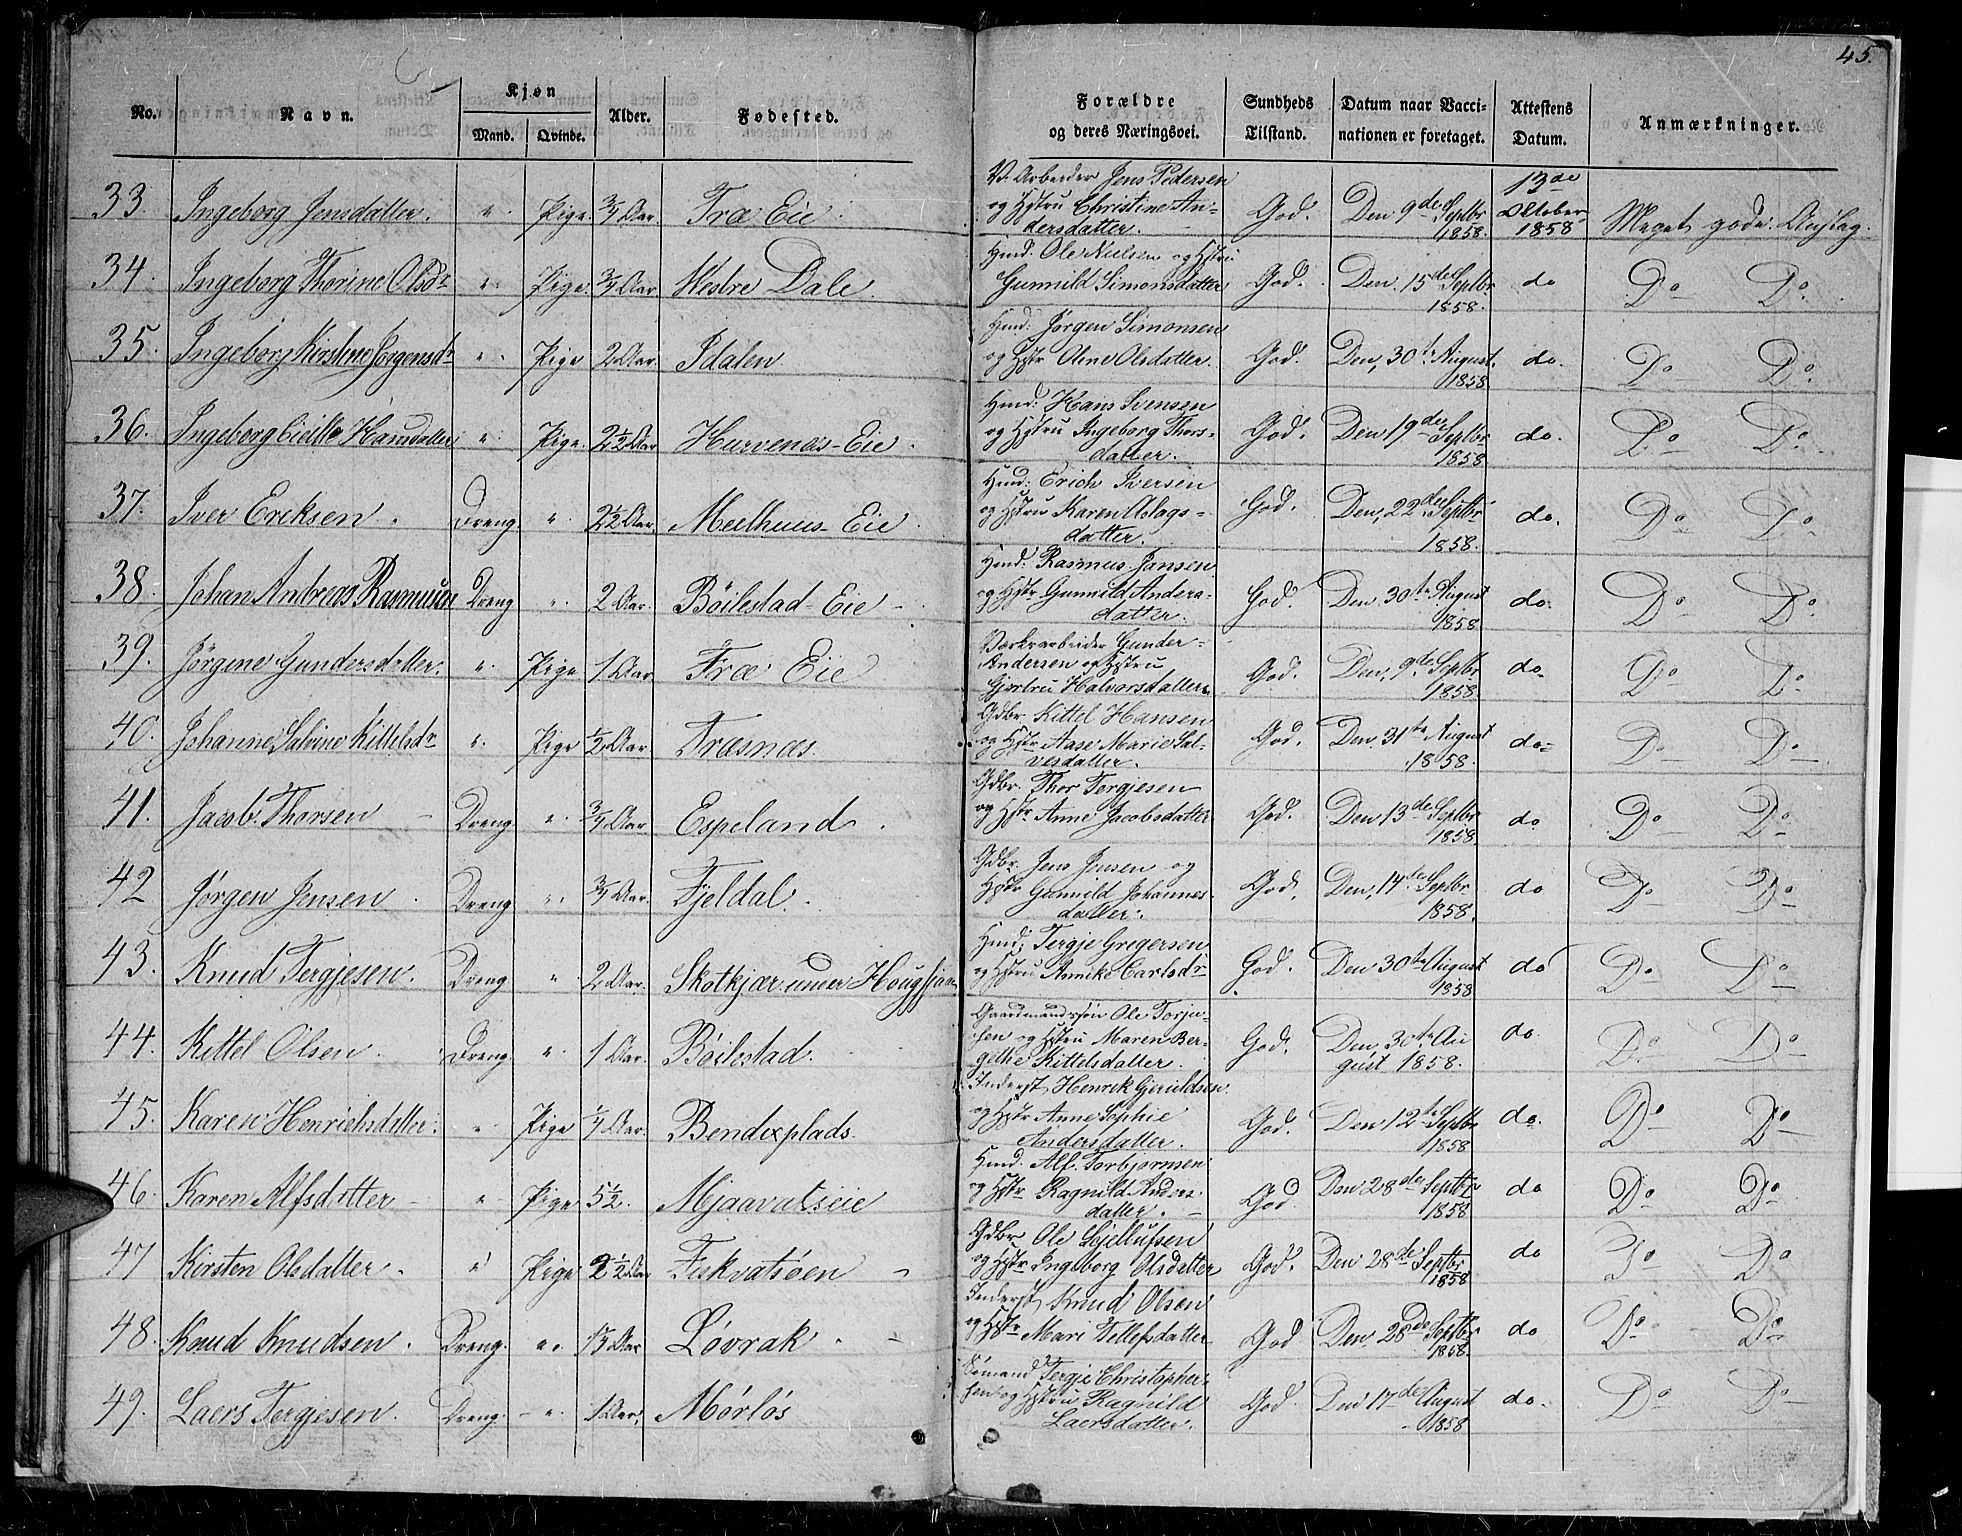 45.
No. Navn. Kjøn Mand. Qvinde. Alder. Fødested. Forældre og deres Næringsvei. Sundheds Tilstand. Datum naar Vaccinationen er foretaget. Attestens Datum. Anmærkninger.
33. Ingeborg Jensdatter. " Pige. 3/4 Aar. Træ Eie. V. Arbeider Jens Pedersen
og Hstru Christine An-
dersdatter. God. Den 9de Septbr 1858. 13de Oktober 1858 Meget gode. Anslag.
34 Ingeborg Thorine Olsdr " Pige. 3/4 Aar Westre Dale. Hmd. Ole Nielsen og Hstru
Gunnild Simonsdatter God. Den 15de Septbr 1858. do Do Do
35. Ingeborg Kirstine Jørgensdr " Pige 2 Aar Idalen Hmd: Jørgen Simonsen
og Hstr Oline Olsdatter. God. Den 30te August 1858. do. Do Do
36. Ingeborg Hansdatter " Pige. 2½ Aar Hurvenæs-Eie. Hmd: Hans Svensen
og Hstru Ingeborg Thors-
datter. God. Den 19de Septbr 1858 do. Do Do
37. Iver Eriksen. Dreng. " 2½ Aar. Meelhuus-Eie Hmd: Erich Iversen
og Hstru Karen Aslags-
datter. God. Den 22de Septbr 1858. do. Do Do
38. Johan Andreas Rasmusen Dreng " 2 Aar. Böilestad-Eie Hmd: Rasmus Jansen
og Hstr Gunnild Anders-
datter. God. Den 30te August 1858. do. Do Do
39. Jörgine Gundersdatter. " Pige 1 Aar. Træ Eie Værkrarbeider Gunder
Andersen og Hstru
Gjertru Halvorsdatter. God. Den 9de Septbr 1858. do. Do Do
40. Johanne Salvine Kittelsdr " Pige ½ Aar Træsnæs. Gdbr. Kittel Hansen
og Hstr Aase Marie Sal-
vesdatter. God. Den 31te August 1858. do Do Do
41. Jacob Thorsen Dreng " 3/4 Aar Espeland. Gdbr. Thor Tergjesen
og Hstr Anne Jacobsdatter God. Den 13de Septbr 1858. do Do Do
42 Jörgen Jensen. Dreng " 3/4 Aar. Fjeldal. Gdbr. Jens Jensen og
Hstr Gunnild Johannes-
datter. God. Den 14de Septbr 1858. do Do Do
43. Knud Tergjesen. Dreng " 2 Aar. Skotkjær under Hmd: Tergje Gregersen
og Hstru Annike Carlsdr God. Den 30te August 1858 do Do Do
44. Kittel Olsen. Dreng. " 1 Aar. Böilestad. Gaardmandssøn Ole Torju-
sen og Hstru Maren Ber-
gethe Kittelsdatter. God. Den 30te Au
gust 1858. do. Do Do
45. Karen Henrichsdatter. " Pige ¼ Aar. Bendixplads. Inderst Henrik
og Hstr Anne Sophie
Andersdatter. God. Den 12te Septbr 1858 do. Do Do
46. Karen Alfsdatter " Pige. 5½. Mjaavatseie Hmd. Alf Torbjørnsen
og Hstr Ragnild Anders
datter. God Den 28de Septbr 1858 do Do Do
47 Kirsten Olsdatter. " Pige 2½ Aar Fiskvatsøen Gdbr Ole
og Hstr Ingeborg Olsdatter God. Den 28de Septbr 1858 do Do Do
48. Knud Knudsen. Dreng. " Aar Lövrak. Inderst Knud Olsen
og Hstr Mari Tellefsdatter God Den 28de Septbr 1858. do Do Do
49. Laers Tergjesen. Dreng. " 1 Aar. Mörlös Sömand Tergje Christopher-
sen og Hstru Ragnild
Laersdatter. God. Den 17de August 1858 do. Do Do